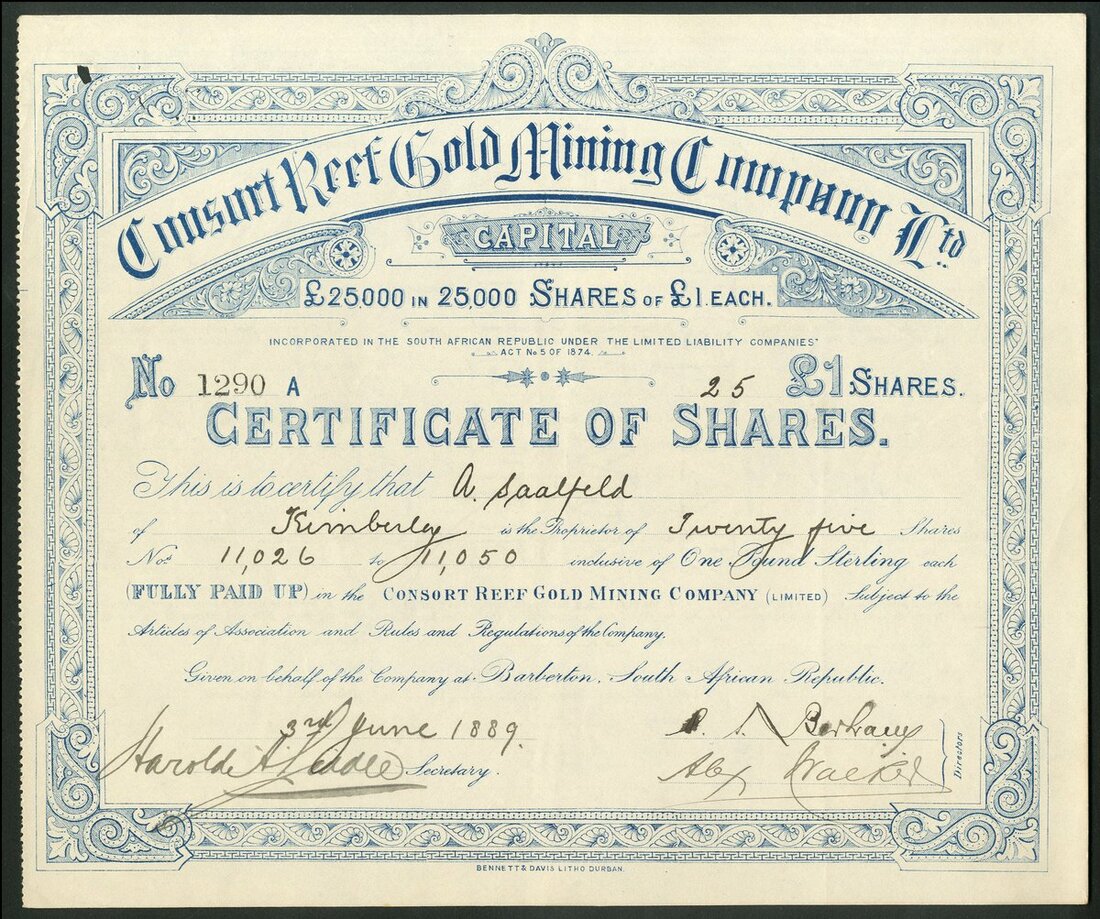 Consort Reef Gold Mining Company Ltd
CAPITAL
£25000 IN 25,000 SHARES OF £1 EACH.
INCORPORATED IN THE SOUTH AFRICAN REPUBLIC UNDER THE LIMITED LIABILITY COMPANIES'
ACT No 5 OF 1874.
No 1290 A 25 £1 SHARES.
CERTIFICATE OF SHARES.
This is to certify that A. Saalfeld
of Kimberley is the Proprietor of Twenty five Shares
Nos. 11,026 to 11,050 inclusive of One Pound Sterling each
(FULLY PAID UP) in the CONSORT REEF GOLD MINING COMPANY (LIMITED) Subject to the
Articles of Association and Rules and Regulations of the Company.
Given on behalf of the Company at Barberton, South African Republic.
3rd June 1889.
Harold Secretary.
Alex Directors
BENNETT & DAVIS LITHO DURBAN.